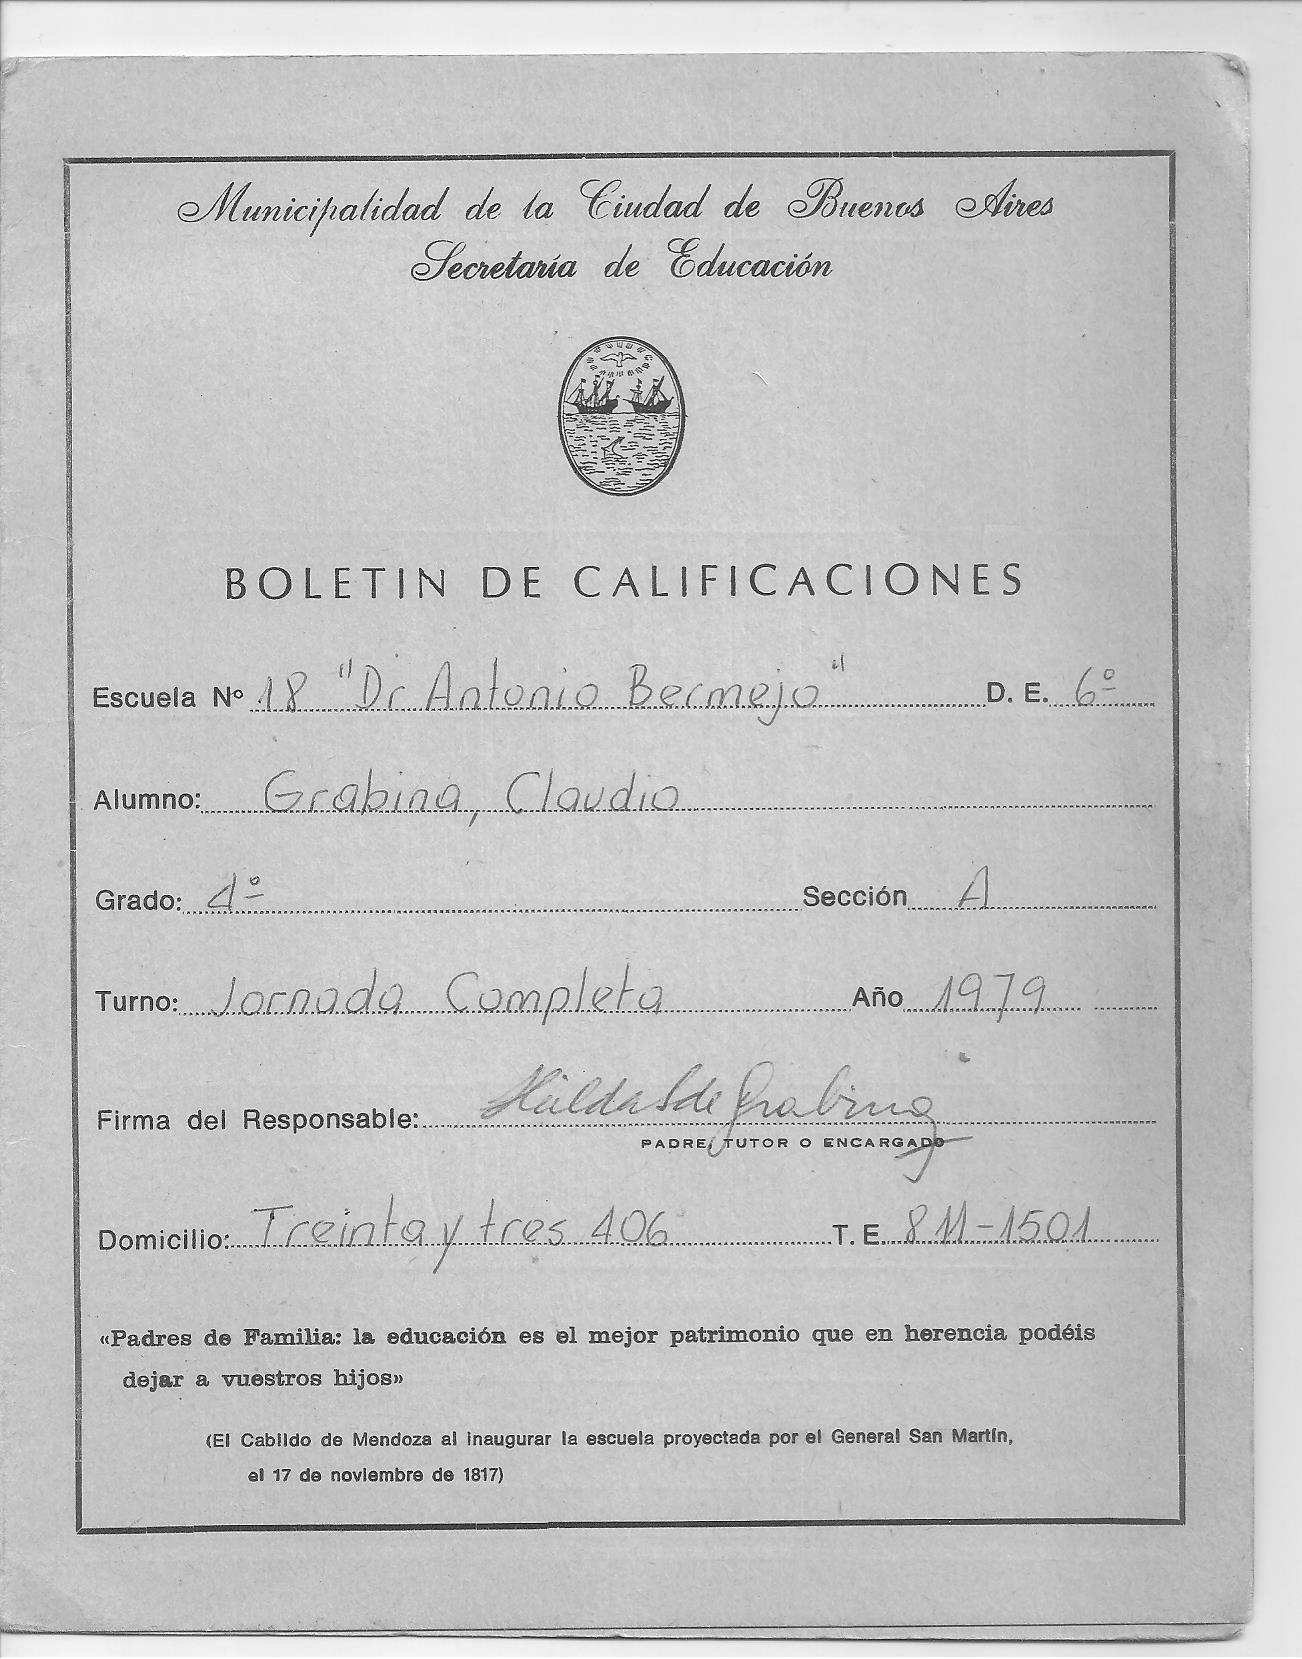 Municipalidad de la Ciudad de Buenos Aires
Secretaría de Educación
BOLETIN DE CALIFICACIONES
Escuela Nº 18 "Dr Antonio Bermejo" D. E. 6º
Alumno: Grabina, Claudio
Grado: 4º Sección A
Turno: Jornada Completa Año 1979
Firma del Responsable: Hilda S de Grabina
PADRE, TUTOR O ENCARGADO
Domicilio: Treinta y tres 406 T. E. 811-1501
«Padres de Familia: la educación es el mejor patrimonio que en herencia podéis
dejar a vuestros hijos»
(El Cabildo de Mendoza al inaugurar la escuela proyectada por el General San Martín,
el 17 de noviembre de 1817)